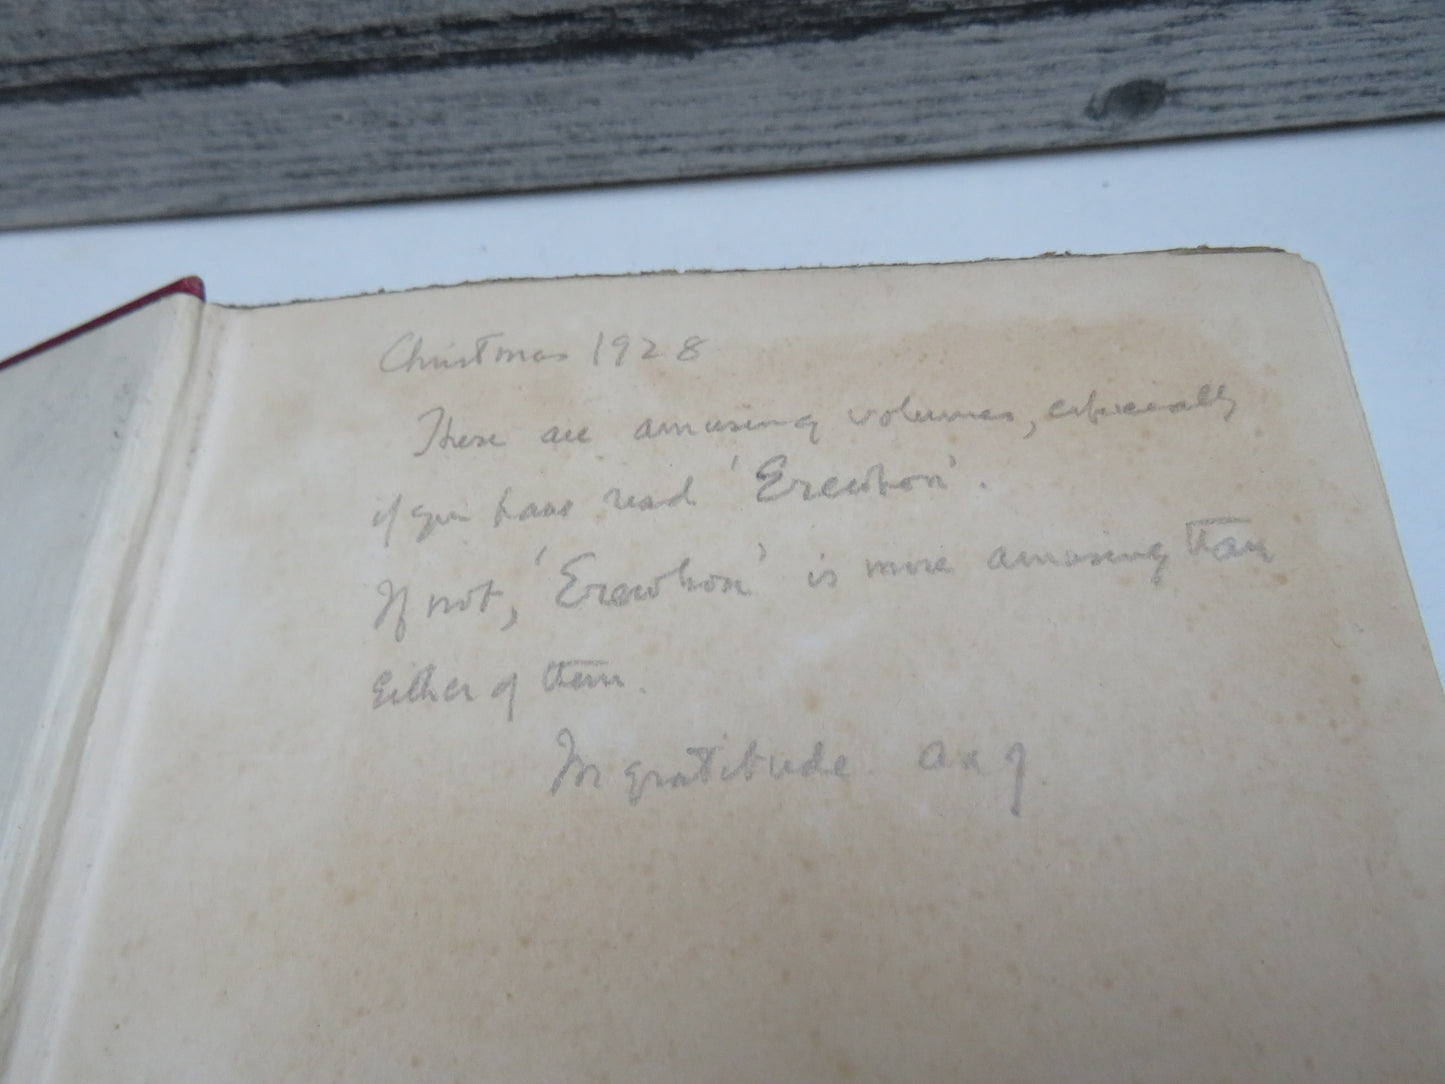 Christmas 1928
These are amusing volumes, especially
if you have read 'Erewhon'.
If not, 'Erewhon' is more amusing than
either of them.
In gratitude